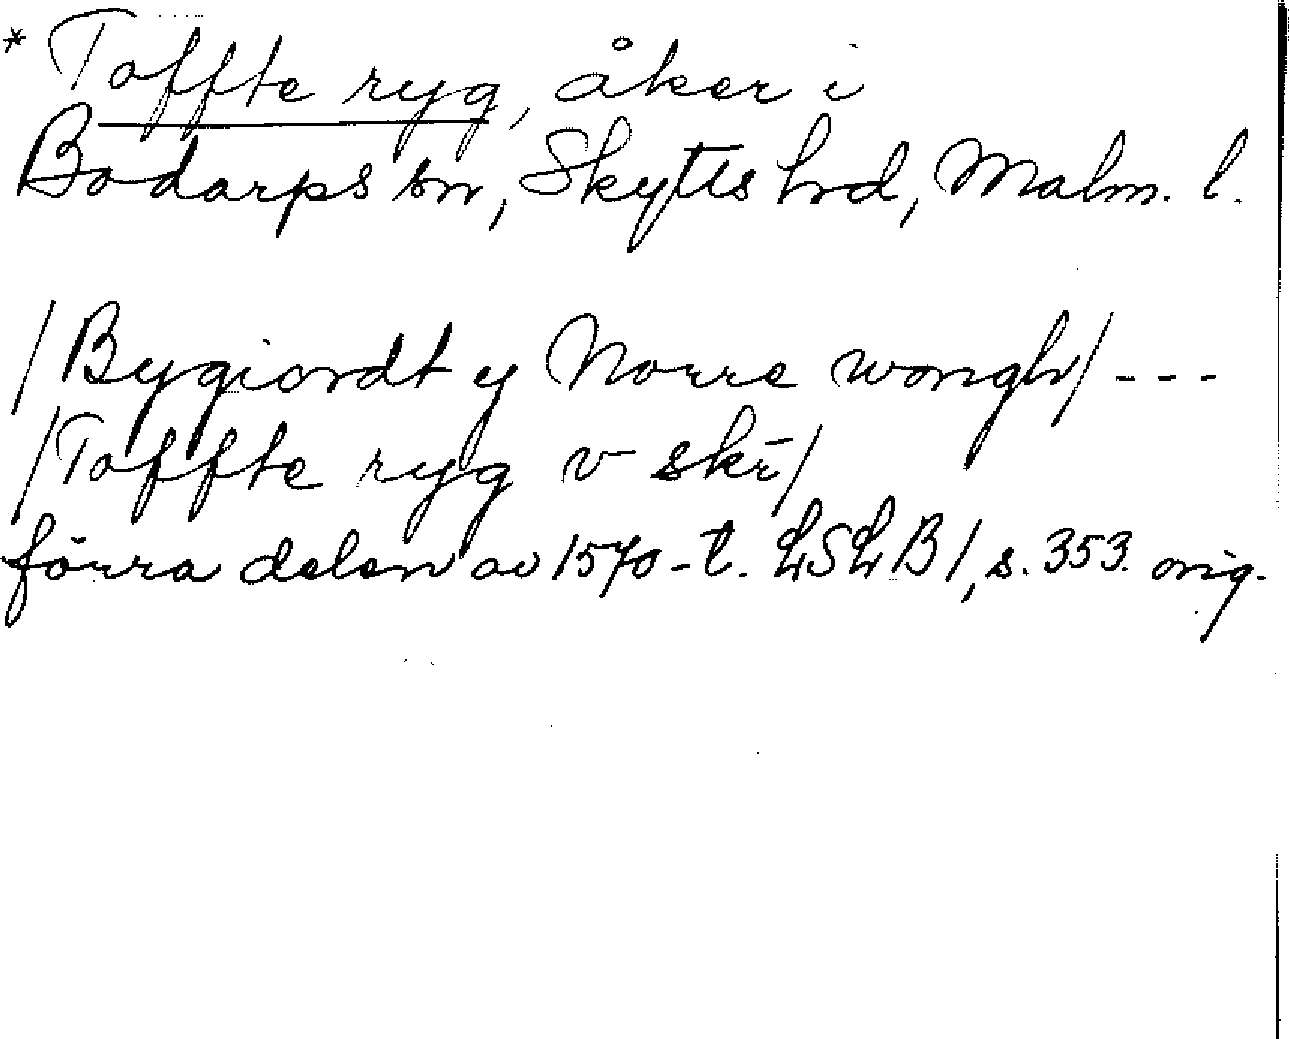 * Toffte ryg, åker i
Bodarps sn, Skytts hd, Malm. l.
/Bygiordt y Norre wongh/ ---
/Toffte ryg v skr/
förra delen av 1570-t. LSLB1, s. 353. orig.